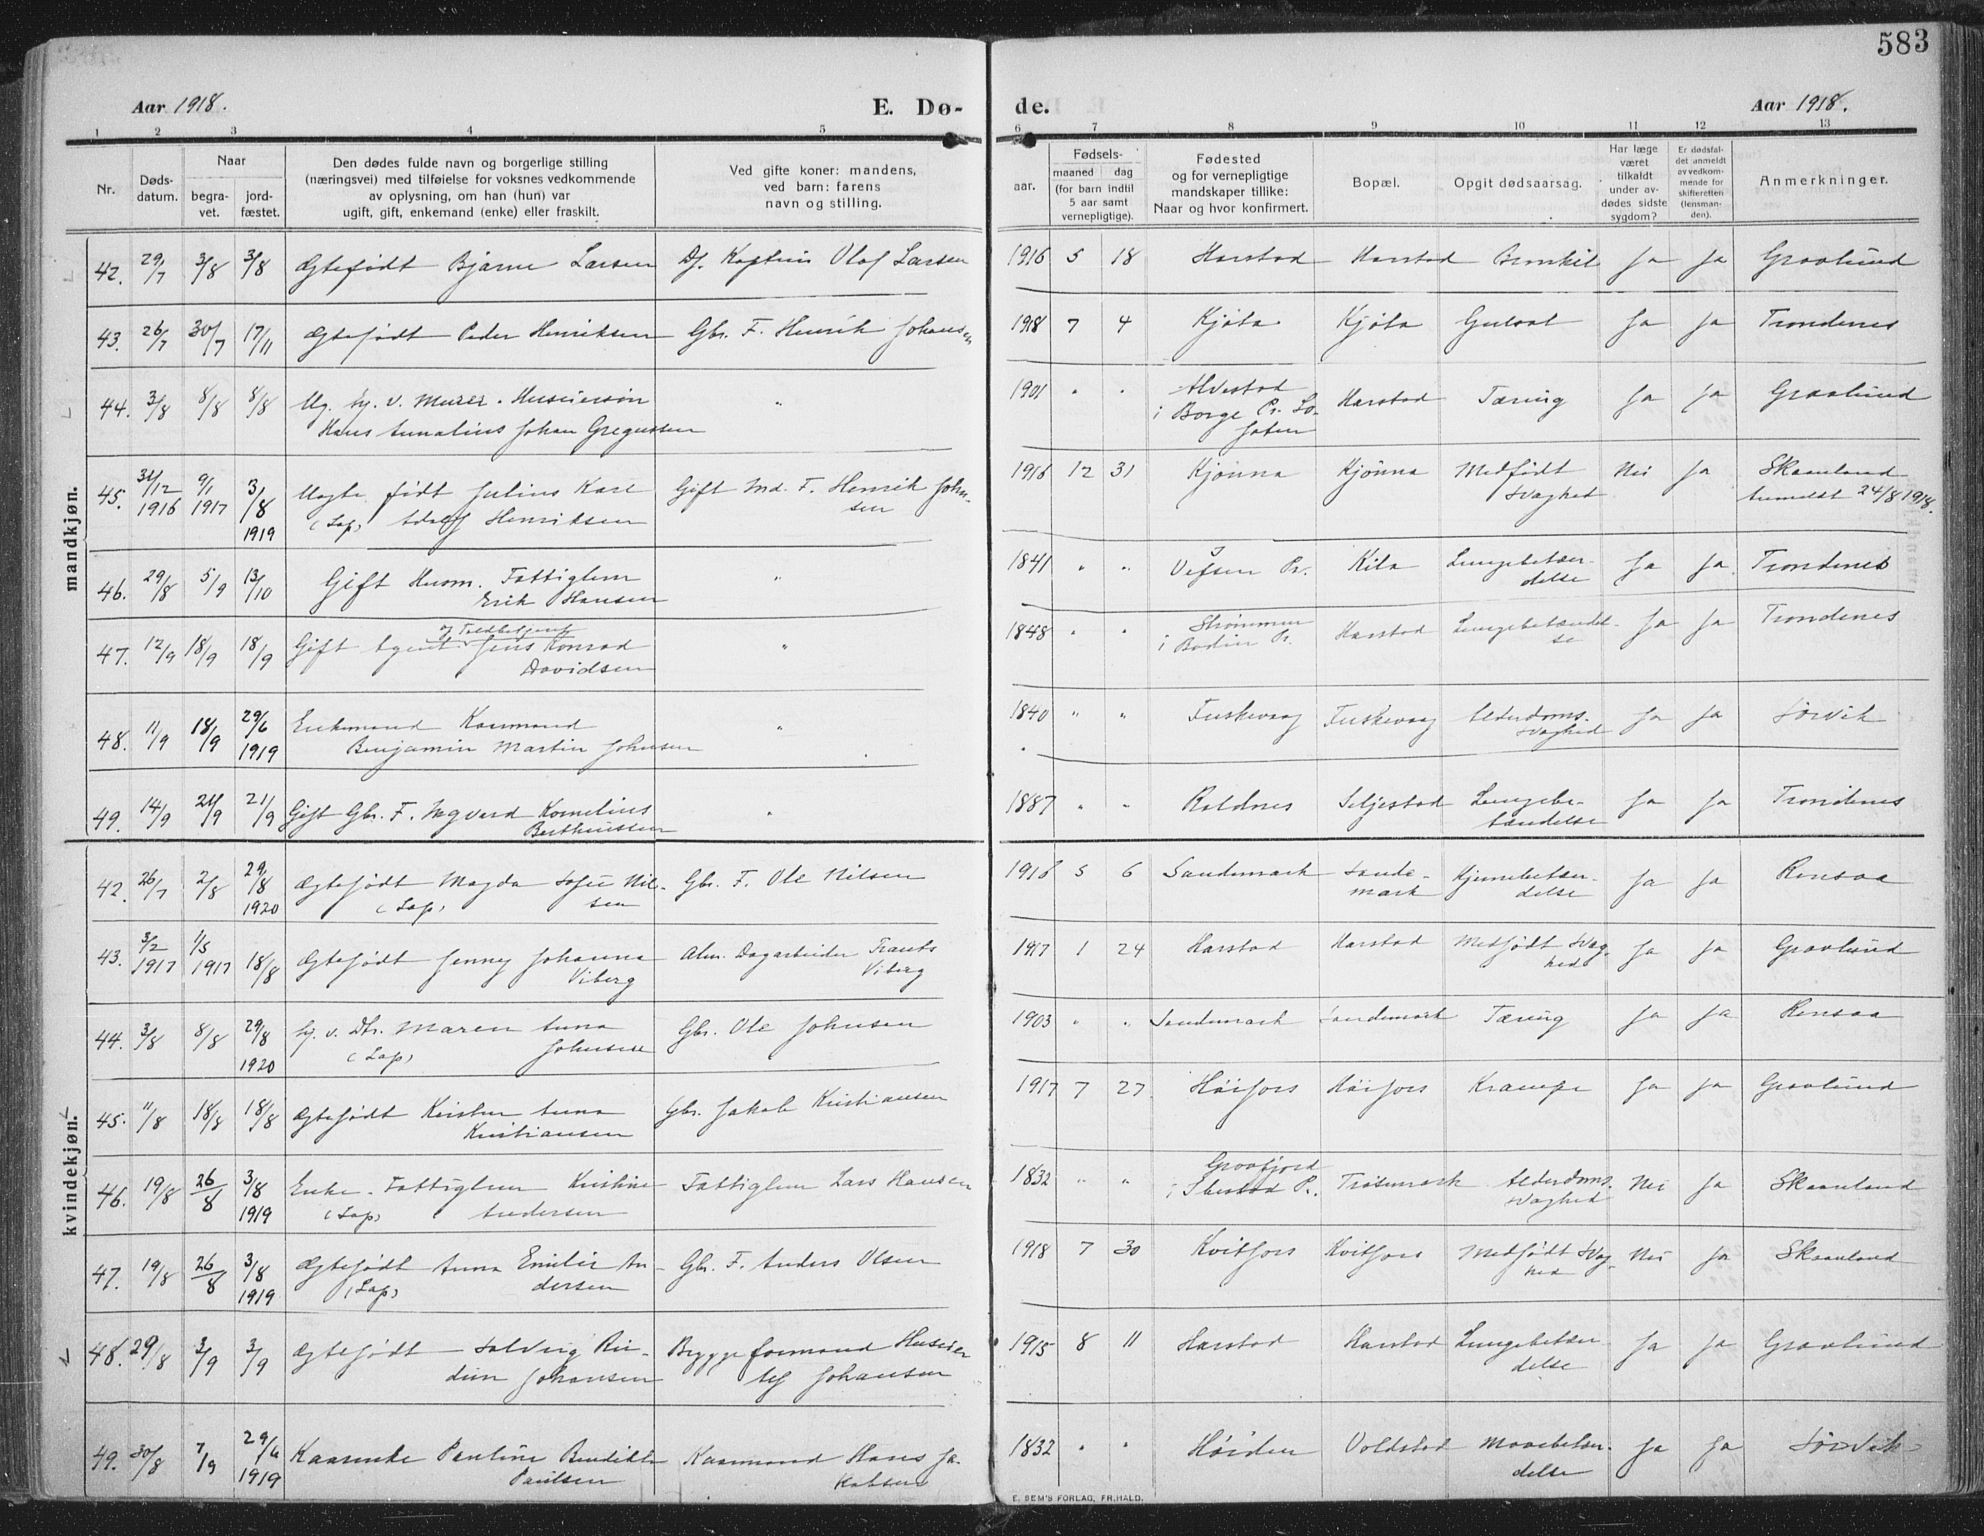 583
Aar 1918.
E. Dø-
de.
Aar 1918.
1 2 3 4 5 6 7 8 9 10 11 12 13
Nr.
Døds-
datum.
Naar
begra-
vet.
jord-
fæstet.
Den dødes fulde navn og borgerlige stilling
(næringsvei) med tilføielse for voksnes vedkommende
av oplysning, om han (hun) var
ugift, gift, enkemand (enke) eller fraskilt.
Ved gifte koner: mandens,
ved barn: farens
navn og stilling.
Fødsels-
aar.
maaned dag
(for barn indtil
5 aar samt
vernepligtige).
Fødested
og for vernepligtige
mandskaper tillike:
Naar og hvor konfirmert.
Bopæl.
Opgit dødsaarsag.
Har læge
været
tilkaldt
under av-
dødes sidste
sygdom?
Er dødsfal-
det anmeldt
av vedkom-
mende for
skifteretten
(lensman-
den).
Anmerkninger.
mandkjøn.
42. 29/7 3/8 3/8 Ægtefødt Bjarne Larsen Olaf Larsen 1916 5 18 Harstad Harstad Ja Ja Gravlund
43. 26/7 30/7 17/11 Ægtefødt Peder Henriksen Gbr. F. Henrik Johansen 1918 7 4 Kjøta Kjøta Gulsot Ja Ja Trondenes
44. 3/8 8/8 8/8 Ug. hj. v. Murer. Huseiersøn
Hans Annalius Johan Gregussen " 1901 " " Alvestad
i Borge Pr. Lo-
foten Harstad Tæring Ja Ja Gravlund
45. 31/12
1916 9/1
1917 3/8
1919 Uægte født Julius Karl
(Lap) Adolf Henriksen Gift Md. F. Henrik John-
sen 1916 12 31 Kjønna Kjønna Medfødt
Svaghed Nei Ja Skaanland
Anmeldt 24/8 1918.
46. 29/8 5/9 13/10 Gift Husm. Fattiglem
Erik Hansen " 1841 " " Vefsen Pr. Kila Lungebetæn-
delse Ja Ja Trondenes
47. 12/9 18/9 18/9 Gift Agent og Toldbetjent Jens Konrad
Davidsen " 1848 " " Strømmen
i Bodin Pr. Harstad Lungebetændel-
se Ja Ja Trondenes
48. 11/9 18/9 29/6
1919 Enkemand Kaarmand
Benjamin Martin Johnsen " 1840 " " Fuskevaag Fuskevaag Alderdoms-
svaghed Ja Ja Sørvik
49. 14/9 21/9 21/9 Gift Gbr. F. Ingvard Kornelius
Bertheussen " 1887 " " Roldnes Seljestad Lungebe-
tændelse Ja Ja Trondenes
kvindekjøn.
42. 26/7 2/8 29/8
1920 Ægtefødt Magda Sofie Nil-
(Lap) sen Gbr. F. Ole Nilsen 1916 5 6 Sandemark Sande-
mark Hjernebetæn-
delse Ja Ja Rensaa
43. 3/2
1917 1/5
1917 18/8 Ægtefødt Jenny Johanna
Viberg Alm. Dagarbeider Frants
Viberg 1917 1 24 Harstad Harstad Medfødt Svag-
hed Ja Ja Gravlund
44. 3/8 8/8 29/8
1920 hj. v. Dtr. Maren Anna
(Lap) Johnsen Gbr. Ole Johnsen 1903 " " Sandemark Sandemark Tæring Ja Ja Rensaa
45. 11/8 18/8 18/8 Ægtefødt Kirsten Anna
Kristiansen Gbr. Jakob Kristiansen 1917 7 27 Høifors Høifors Krampe Ja Ja Gravlund
46. 19/8 26/8 3/8
1919 Enke. Fattiglem Kristine
(Lap) Andersen Fattiglem Lars Hansen 1832 " " Graafjord
i Ibestad Pr. Trøsemark Alderdoms-
svaghed Nei Ja Skaanland
47. 19/8 26/8 3/8
1919 Ægtefødt Anna Emilie An-
(Lap) dersen Gbr. F. Anders Olsen 1918 7 30 Kvitfors Kvitfors Medfødt Svag-
hed Nei Ja Skaanland
48. 29/8 3/9 3/9 Ægtefødt Solveig
Johansen Bryggeformand Huseier
Johansen 1915 8 11 Harstad Harstad Lungebetæn-
delse Ja Ja Gravlund
49. 30/8 7/9 29/6
1919 Kaarenke Pauline Bendikte
Paulsen Kaarmand Hans Ja-
kobsen 1832 " " Voldstad Mavebetæn-
delse Ja Ja Sørvik
E. SEM'S FORLAG, FR.HALD.